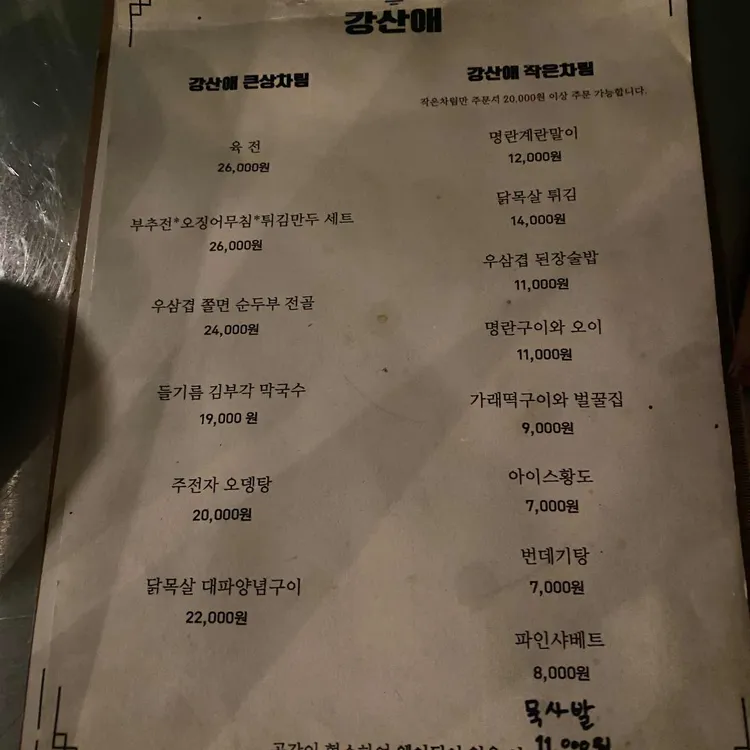 강산애
강산애 큰상차림
육 전
26,000원
부추전*오징어무침*튀김만두 세트
26,000원
우삼겹 쫄면 순두부 전골
24,000원
들기름 김부각 막국수
19,000 원
주전자 오뎅탕
20,000원
닭목살 대파양념구이
22,000원
강산애 작은차림
작은차림만 주문서 20,000원 이상 주문 가능합니다.
명란계란말이
12,000원
닭목살 튀김
14,000원
우삼겹 된장술밥
11,000원
명란구이와 오이
11,000원
가래떡구이와 벌꿀집
9,000원
아이스황도
7,000원
번데기탕
7,000원
파인샤베트
8,000원
묵사발
11,000원